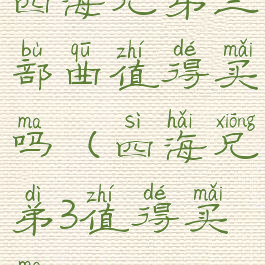 四海兄弟三
bù qū zhí dé mǎi
部曲值得买
ma sì hǎi xiōng
吗（四海兄
dì zhí dé mǎi
弟3值得买
ma